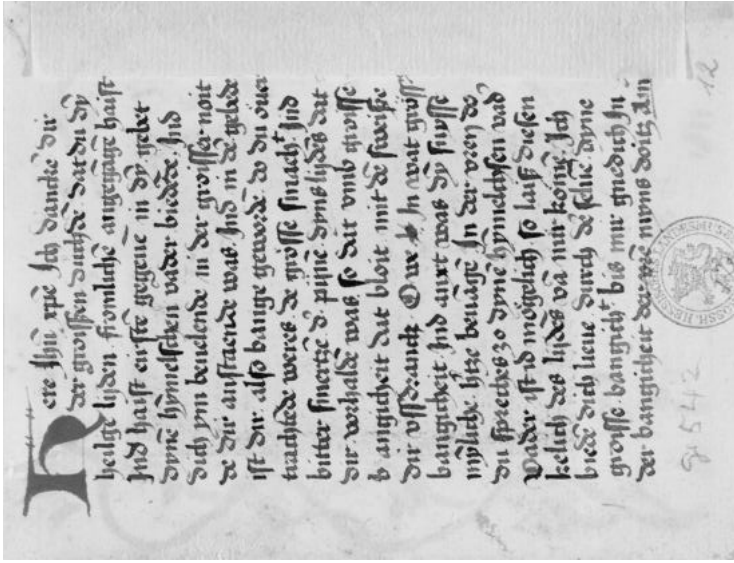 Here Jhū xpē Jch dancke dir
der groissen duchde dat du dy
heilge lijden fromliche angegage haist
Jnd haist en ste gegeue in dy gebet
dyne hymelschen vader biedede. Jnd
dich ym beuelende in der groisser noit
de dir anstaende was. Jnd in de gebede
ist dir also bange geworde do du ouer
trachtede weres de groisse smacht Jnd
bitter smertze d' pijne dyns lijdes dat
dir vorhalde was so dat vmb groisse
bangicheit dat bloit mit de sweisse
dir vssdranck O we Jn wat groiss
bangicheit Jnd anxt was dy suysse
mylliche htze beuage Jn der vren do
du spreches zo dyne hymelschen vad
Vader ist id mogelich so lais diesen
kelich des lijdes va mir kome Jch
biede dich lieue durch de selue dyne
groisse bangicht bis mir gnedich Jn
der bangicheit der myns doitz Am
gr 542
12